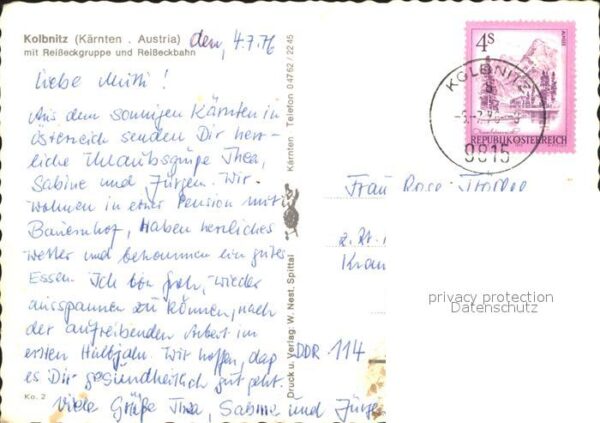 Kolbnitz (Kärnten . Austria) den, 4.7.76
mit Reißeckgruppe und Reißeckbahn
Liebe Mutti!
Aus dem sonnigen Kärnten in
Österreich senden Dir herz-
liche Urlaubsgrüße Thea,
Sabine und Jürgen. Wir
wohnen in einer Pension mit
Bauernhof, haben herrliches
Wetter und bekommen ein gutes
Essen. Ich bin froh, wieder
ausspannen zu können, nach
der aufreibenden Arbeit im
ersten Halbjahr. Wir hoffen, daß
es Dir gesundheitlich gut geht.
Viele Grüße Thea, Sabine und Jürgen
Ko. 2
Druck u. Verlag: W. Nest, Spittal Kärnten Telefon 04762/2245
4S
ALMSEE
REPUBLIK ÖSTERREICH
KOLBNITZ
9815
Frau Rose-
z. Zt.
Kran
DDR 114
privacy protection
Datenschutz